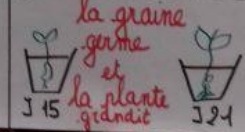 la graine
germe
et
la plante
grandit
J 15
J 21